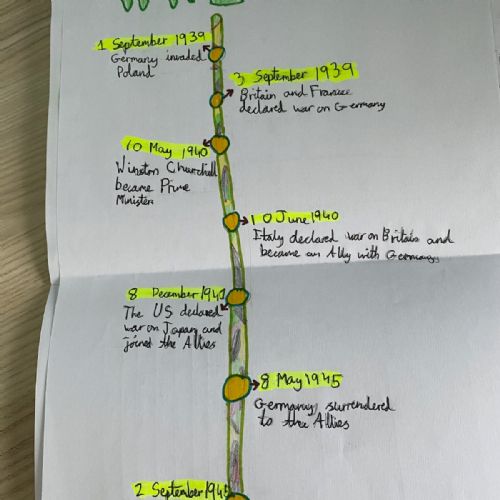 1 September 1939
Germany invaded
Poland
3 September 1939
Britain and France
declared war on Germany
10 May 1940
Winston Churchill
became Prime
Minister
10 June 1940
Italy declared war on Britain and
became an Ally with Germany
8 December 1941
The US declared
war on Japan and
joined the Allies
8 May 1945
Germany surrendered
to the Allies
2 September 1945